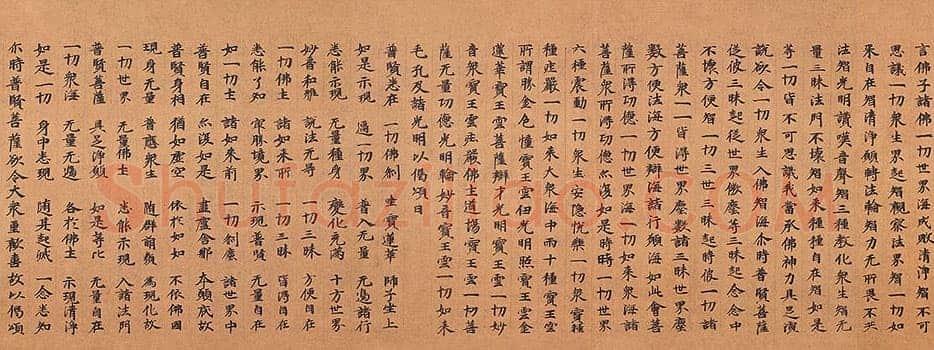 言佛子諸佛一切世界海成敗清淨智不可
思議一切眾生界起智觀察法界智一切如
來自在智清淨願轉法輪智力无所畏不共
法智光明讚嘆音聲智三種教化眾生智无
量三昧法門不壞智如來種種自在智如是
等一切皆不可思議我當承佛神力具足演
說欲令一切眾生入佛智海尒時普賢菩薩
從彼三昧起從世界微塵等三昧起念念中
不壞方便智一切三世三昧起時彼一切諸
菩薩眾一一皆得世界塵數諸三昧世界塵
數方便法海方便辯海諸行願海如此會菩
薩所得功德一切世界海一切如來眾海諸
菩薩眾所得功德亦復如是時時一切世界
六種震動一切眾生安隱快樂一切眾寶種
種庄嚴一切如來大眾海中雨十種寶王雲
所謂勝金色幢寶王雲佛光明照寶王雲金
蓮華寶王雲菩薩辯才光明寶王雲一切妙
音眾寶王雲庄嚴佛土道場寶王雲一切菩
薩无量功德光明輪妙音寶王雲一切如來
毛孔及諸光明以偈頌曰
普賢悉在 一切佛剎 坐寶蓮華 師子座上
如是示現 遍一切界 普入无量 无邊諸行
悉能示現 无量種身 變化充滿 十方世界
妙音和雅 說法无㝵 一切三昧 方便自在
一切佛土 諸如來所 一切三昧 皆得自在
悉能了知 實際境界 示現普賢 无量自在
如一切土 諸如來前 一切剎塵 諸世界中
普賢自在 亦復如是 盧舍那 本願底故
普賢身相 猶如虛空 依於如如 不依佛國
現身无量 普應眾生 隨群萌類 為現化故
一切世界 无量佛土 悉能示現 入諸法門
普賢菩薩 具足淨願 如是等比 无量自在
一切眾海 无量无邊 各於佛土 示現清淨
如是一切 身中悉現 隨其起滅 一念悉知
尒時普賢菩薩欲令大眾重歡喜故以偈頌